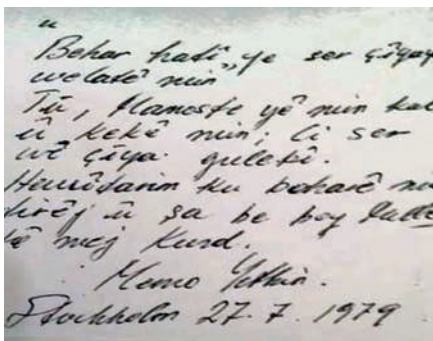 "
Behar hatî,, ye ser çîyay
welatê min
Tû, Mamoste yê min
û kekê min; li ser
wê çîya gulekî.
Hêvîdarim ku beharê
dirêj û şa be boy
tê mej Kurd.
Memo Yetkin.
Stockholm 27. 7. 1979